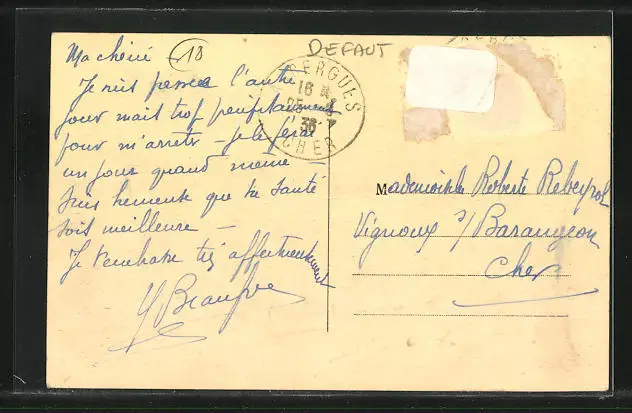 Ma chérie
18
DEFAUT
Je suis passée l'autre
jour mais trop
pour m'arreter – Je le ferai
un jour quand meme
suis heureuse que ta santé
soit meilleure –
Je t'embrasse
Y Beaufre
ERGUES
16
25
36
CHER
Mademoiselle Roberte Rebeyrol
Vignoux s/ Barangeon
Cher